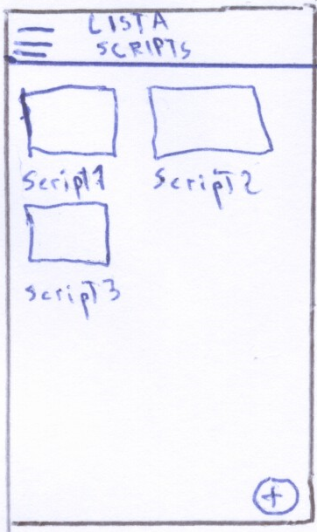 LISTA
SCRIPTS
Script1 Script2
Script3
+